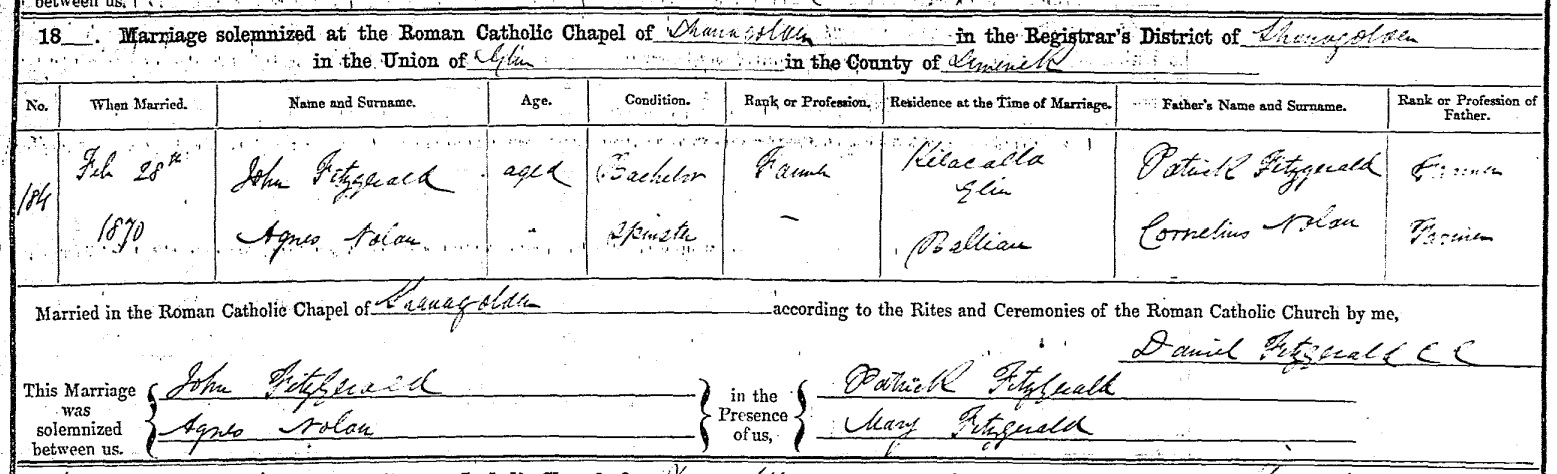 between us.
18 . Marriage solemnized at the Roman Catholic Chapel of Shanagolden in the Registrar's District of Shanagolden
in the Union of Glin in the County of Limerick
No. When Married. Name and Surname. Age. Condition. Rank or Profession. Residence at the Time of Marriage. Father's Name and Surname. Rank or Profession of Father.
184 Feb 28th John Fitzgerald aged Bachelor Farmer Kilacalla Glin Patrick Fitzgerald Farmer
1870 Agnes Nolan " Spinster – Cornelius Nolan Farmer
Married in the Roman Catholic Chapel of Shanagolden according to the Rites and Ceremonies of the Roman Catholic Church by me,
Daniel Fitzgerald CC
This Marriage was solemnized between us. John Fitzgerald in the Presence of us, Patrick Fitzgerald
Agnes Nolan Mary Fitzgerald